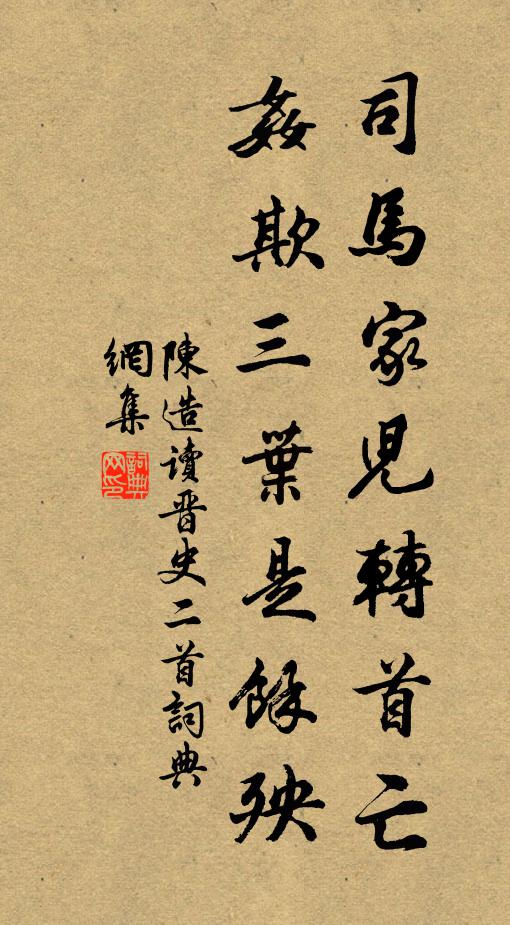 司馬家児轉首亡
姦欺三葉是餘殃
陳造讀晋史二首詞典
網集
詞典網印